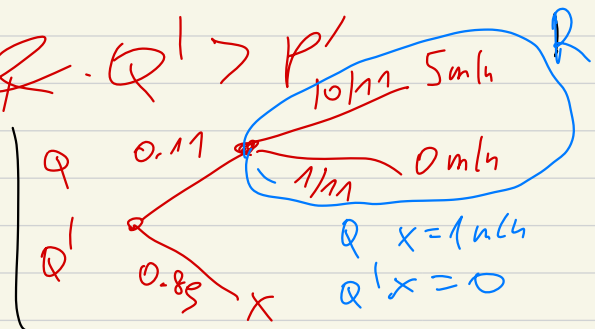 . Q' > P'
R
10/11 5 mln
Q 0.11
0 mln
1/11
Q'
0.89 x
Q x = 1 mln
Q' x = 0